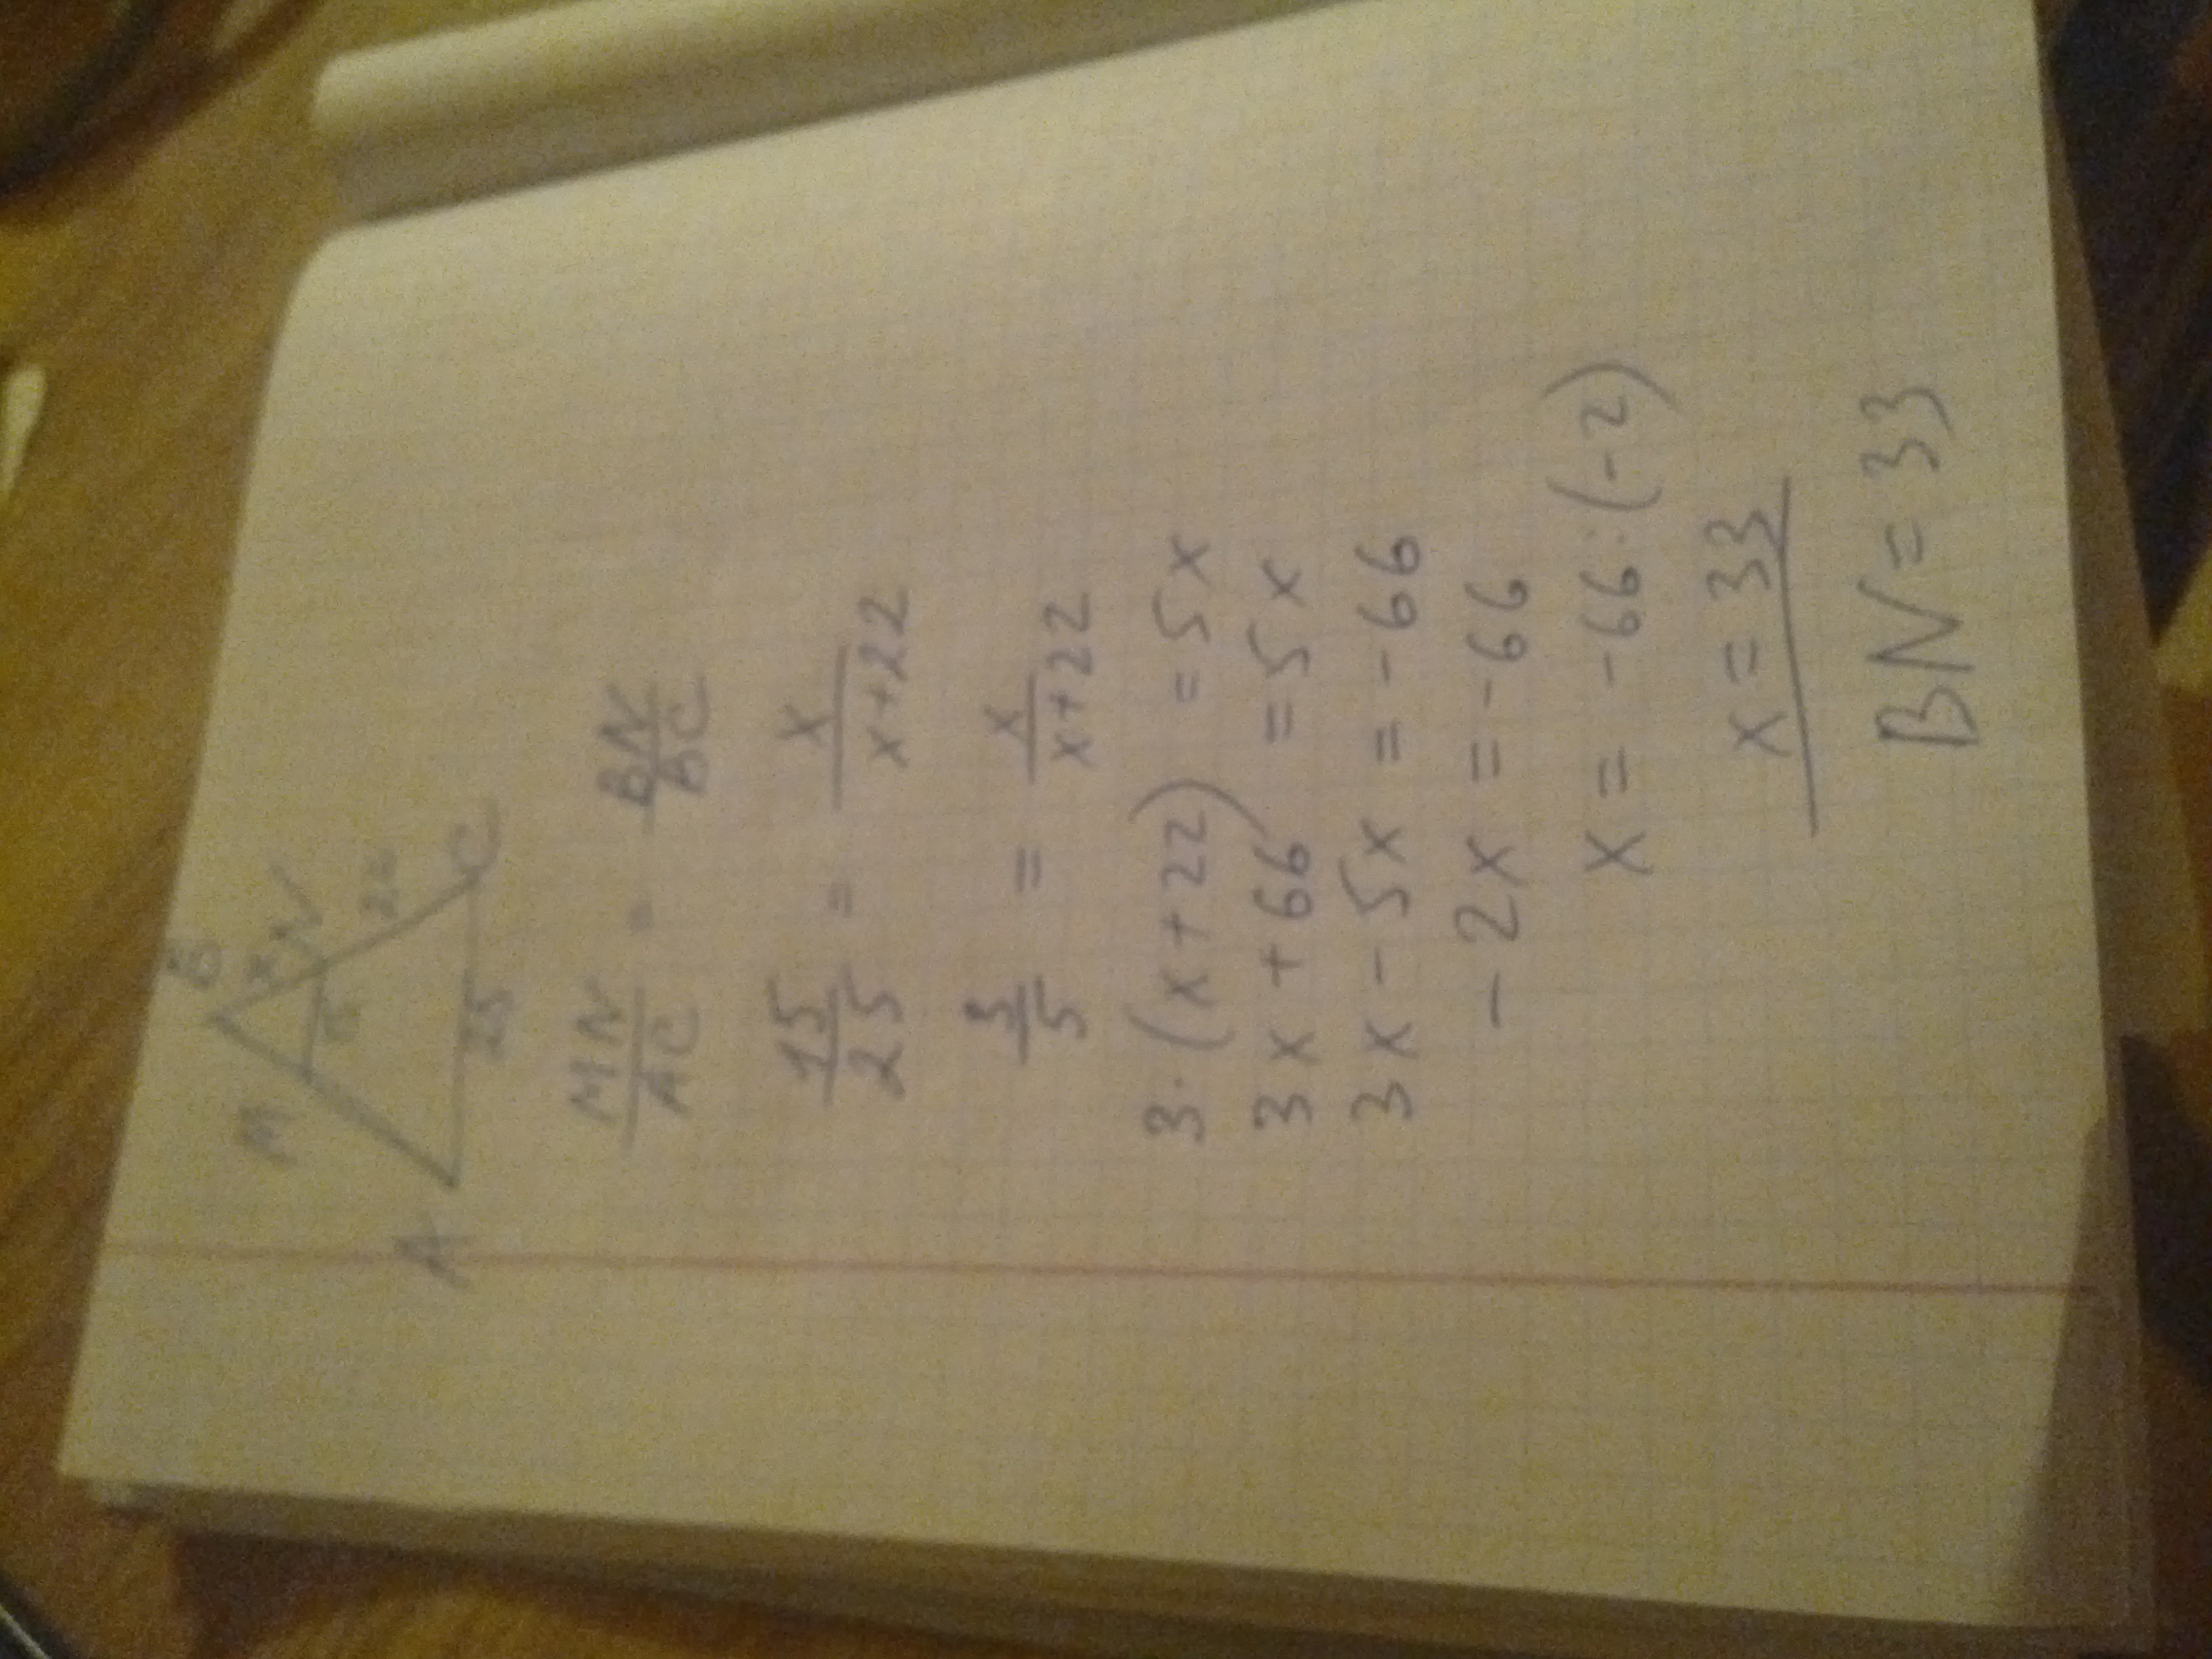 B
M x N
15 22
A 25 C
MN/AC = BN/BC
15/25 = x/x+22
3/5 = x/x+22
3·(x+22) = 5x
3x+66 = 5x
3x-5x = -66
-2x = -66
x = -66:(-2)
x = 33
BN = 33